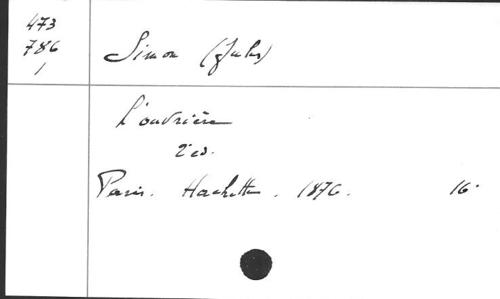 473
786
1
Simon (Jules)
L'ouvrière
2e ed.
Paris. Hachette. 1876. 16°